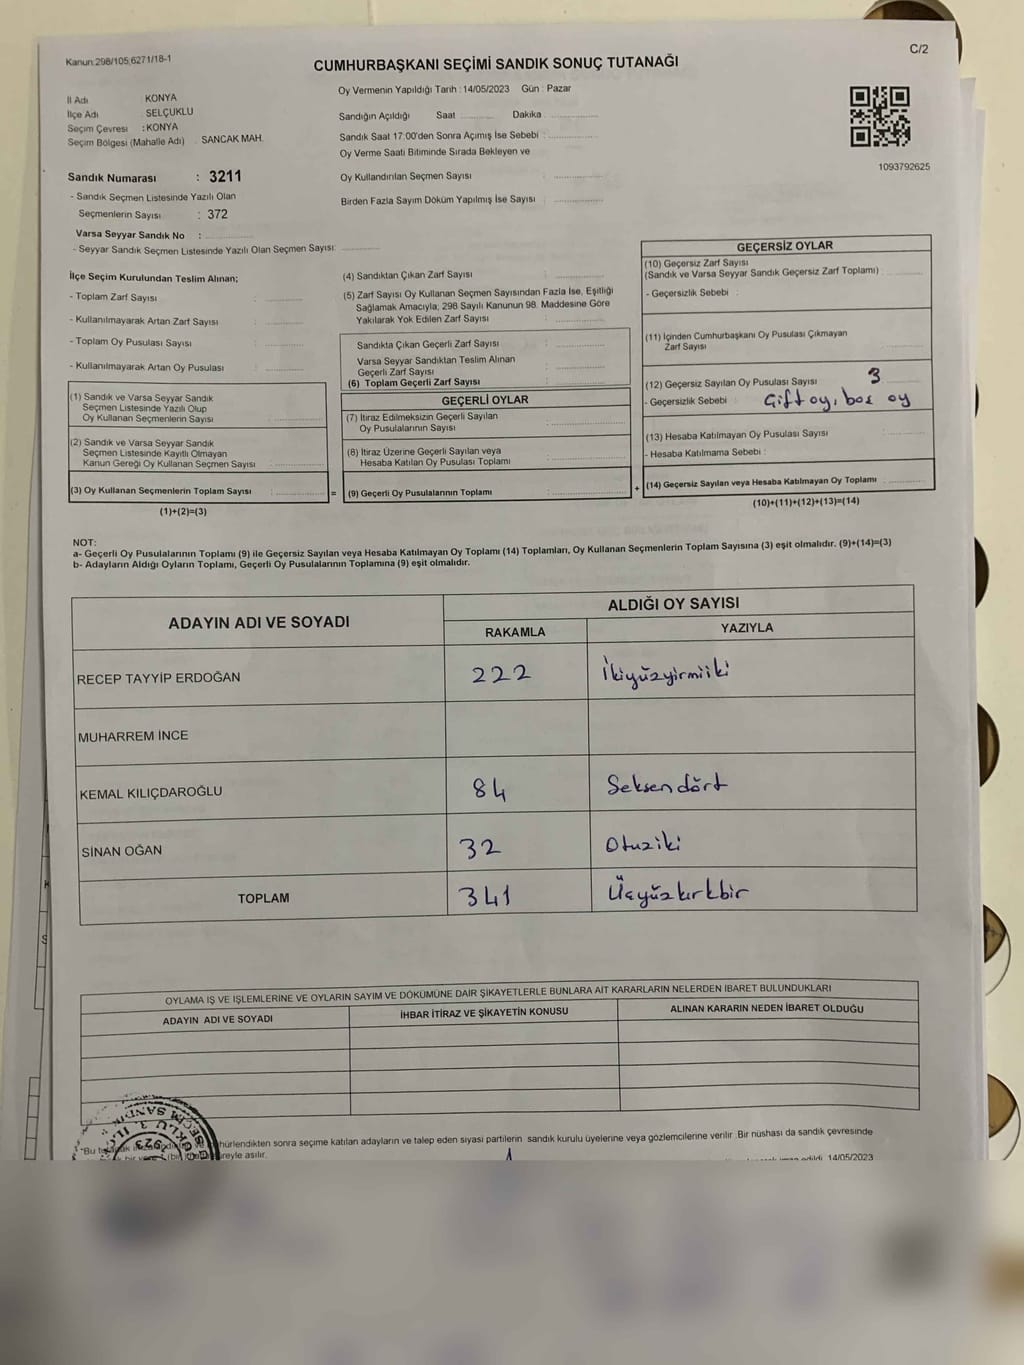 Kanun:298/105;6271/18-1
C/2
CUMHURBAŞKANI SEÇİMİ SANDIK SONUÇ TUTANAĞI
Oy Vermenin Yapıldığı Tarih : 14/05/2023 Gün : Pazar
İl Adı : KONYA
İlçe Adı : SELÇUKLU
Seçim Çevresi : KONYA
Seçim Bölgesi (Mahalle Adı) : SANCAK MAH.
Sandığın Açıldığı Saat ............ Dakika ................
Sandık Saat 17:00'den Sonra Açımış İse Sebebi : ................
Oy Verme Saati Bitiminde Sırada Bekleyen ve
Oy Kullandırılan Seçmen Sayısı : ................
Birden Fazla Sayım Döküm Yapılmış İse Sayısı : ................
1093792625
Sandık Numarası : 3211
- Sandık Seçmen Listesinde Yazılı Olan
Seçmenlerin Sayısı : 372
Varsa Seyyar Sandık No : ................
- Seyyar Sandık Seçmen Listesinde Yazılı Olan Seçmen Sayısı: ............
İlçe Seçim Kurulundan Teslim Alınan;
- Toplam Zarf Sayısı : ............
- Kullanılmayarak Artan Zarf Sayısı : ............
- Toplam Oy Pusulası Sayısı : ............
- Kullanılmayarak Artan Oy Pusulası : ............
(1) Sandık ve Varsa Seyyar Sandık
Seçmen Listesinde Yazılı Olup
Oy Kullanan Seçmenlerin Sayısı : ................
(2) Sandık ve Varsa Seyyar Sandık
Seçmen Listesinde Kayıtlı Olmayan
Kanun Gereği Oy Kullanan Seçmen Sayısı : ................
(3) Oy Kullanan Seçmenlerin Toplam Sayısı : ................ =
(1)+(2)=(3)
(4) Sandıktan Çıkan Zarf Sayısı : ................
(5) Zarf Sayısı Oy Kullanan Seçmen Sayısından Fazla İse, Eşitliği
Sağlamak Amacıyla; 298 Sayılı Kanunun 98. Maddesine Göre
Yakılarak Yok Edilen Zarf Sayısı : ................
Sandıkta Çıkan Geçerli Zarf Sayısı : ................
Varsa Seyyar Sandıktan Teslim Alınan
Geçerli Zarf Sayısı : ................
(6) Toplam Geçerli Zarf Sayısı : ................
GEÇERLİ OYLAR
(7) İtiraz Edilmeksizin Geçerli Sayılan
Oy Pusulalarının Sayısı : ................
(8) İtiraz Üzerine Geçerli Sayılan veya
Hesaba Katılan Oy Pusulası Toplamı : ................
(9) Geçerli Oy Pusulalarının Toplamı : ................ +
GEÇERSİZ OYLAR
(10) Geçersiz Zarf Sayısı
(Sandık ve Varsa Seyyar Sandık Geçersiz Zarf Toplamı) : ............
- Geçersizlik Sebebi :
(11) İçinden Cumhurbaşkanı Oy Pusulası Çıkmayan
Zarf Sayısı : ............
(12) Geçersiz Sayılan Oy Pusulası Sayısı : 3
- Geçersizlik Sebebi : Çift oy, boş oy
(13) Hesaba Katılmayan Oy Pusulası Sayısı : ............
- Hesaba Katılmama Sebebi :
(14) Geçersiz Sayılan veya Hesaba Katılmayan Oy Toplamı : ............
(10)+(11)+(12)+(13)=(14)
NOT:
a- Geçerli Oy Pusulalarının Toplamı (9) ile Geçersiz Sayılan veya Hesaba Katılmayan Oy Toplamı (14) Toplamları, Oy Kullanan Seçmenlerin Toplam Sayısına (3) eşit olmalıdır. (9)+(14)=(3)
b- Adayların Aldığı Oyların Toplamı, Geçerli Oy Pusulalarının Toplamına (9) eşit olmalıdır.
ADAYIN ADI VE SOYADI
ALDIĞI OY SAYISI
RAKAMLA YAZIYLA
RECEP TAYYİP ERDOĞAN 222 İkiyüzyirmiiki
MUHARREM İNCE
KEMAL KILIÇDAROĞLU 84 Seksen dört
SİNAN OĞAN 32 Otuziki
TOPLAM 341 Üçyüzkırkbir
OYLAMA İŞ VE İŞLEMLERİNE VE OYLARIN SAYIM VE DÖKÜMÜNE DAİR ŞİKAYETLERLE BUNLARA AİT KARARLARIN NELERDEN İBARET BULUNDUKLARI
ADAYIN ADI VE SOYADI İHBAR İTİRAZ VE ŞİKAYETİN KONUSU ALINAN KARARIN NEDEN İBARET OLDUĞU
hürlendikten sonra seçime katılan adayların ve talep eden siyasi partilerin sandık kurulu üyelerine veya gözlemcilerine verilir. Bir nüshası da sandık çevresinde
reyle asılır. edildi. 14/05/2023